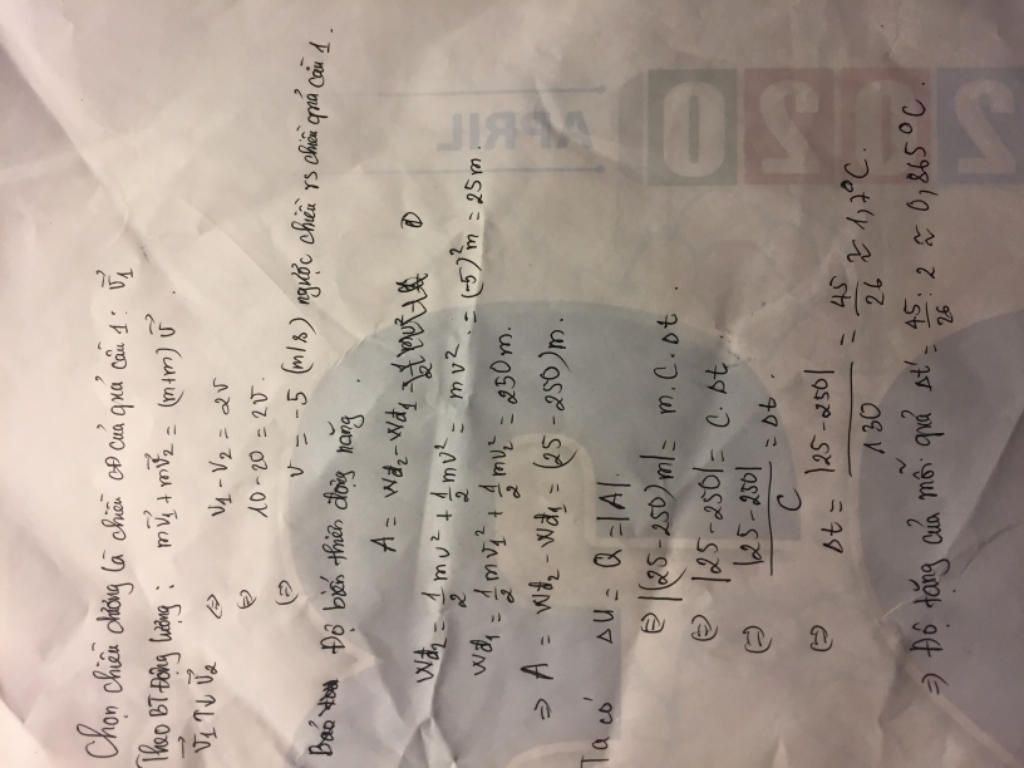 Chọn chiều dương là chiều cđ của quả cầu 1: v⃗₁
Theo BT động lượng: mv⃗₁ + mv⃗₂ = (m+m)v⃗
v⃗₁ ↑↓ v⃗₂ ⇔ v₁ - v₂ = 2v
⇔ 10 - 20 = 2v
⇔ v = -5 (m/s) ngược chiều vs chiều quả cầu 1.
Độ biến thiên động năng.
A = Wđ₂ - Wđ₁
Wđ₂ = 1/2 mv² + 1/2 mv² = mv² = (-5)² m = 25m.
Wđ₁ = 1/2 mv₁² + 1/2 mv₂² = 250m.
⇒ A = Wđ₂ - Wđ₁ = (25 - 250)m.
Ta có ΔU = Q = |A|.
⇔ |(25-250)m| = m.C.Δt.
⇔ |25-250| = C.Δt
⇔ |25-250| / C = Δt.
⇔ Δt = |25-250| / 130 = 45/26 ≈ 1,7°C.
⇒ Độ tăng của mỗi quả Δt' = 45/26 : 2 ≈ 0,865°C.
APRIL
2020